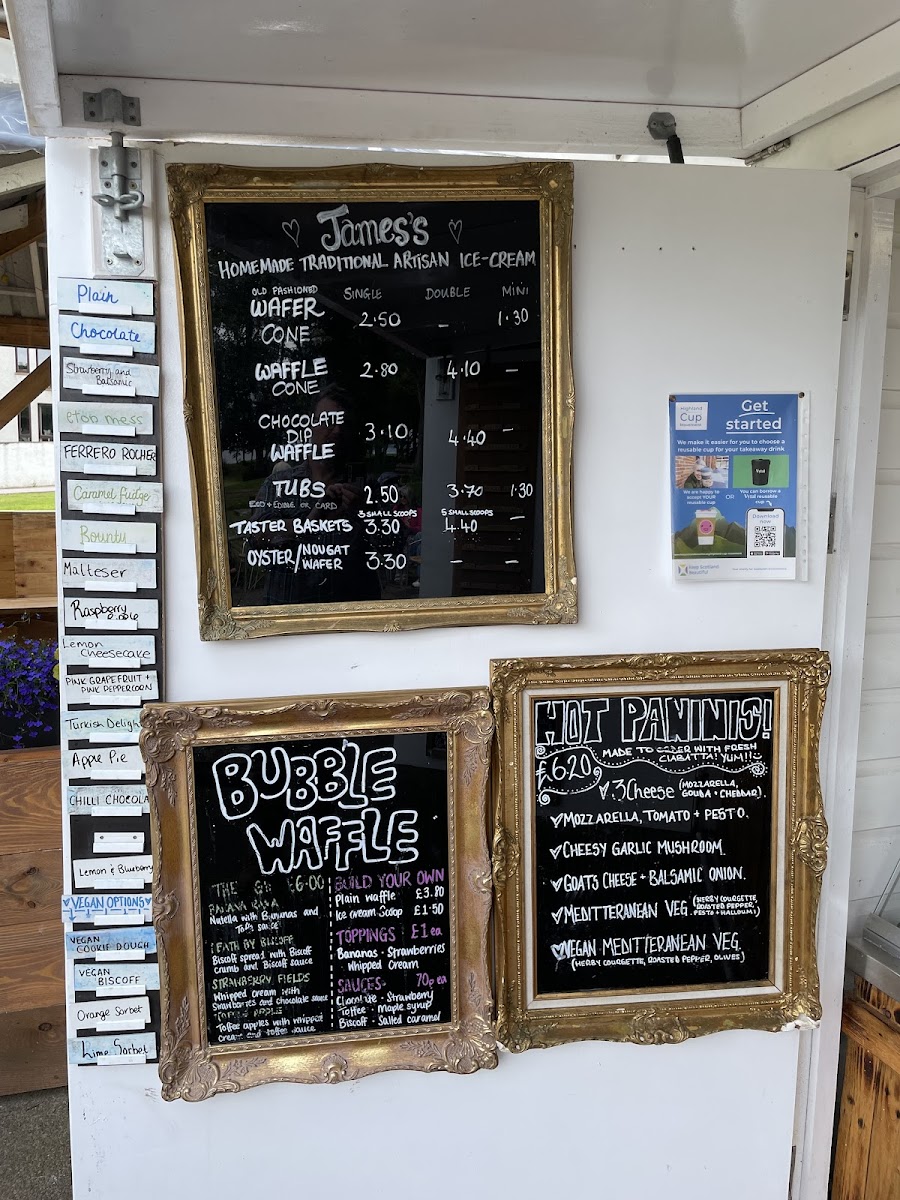 James's
HOMEMADE TRADITIONAL ARTISAN ICE-CREAM
SINGLE DOUBLE MINI
OLD FASHIONED
WAFER
CONE 2.50 – 1.30
WAFFLE
CONE 2.80 4.10 –
CHOCOLATE
DIP
WAFFLE 3.10 4.40 –
TUBS 2.50 3.70 1.30
EDIBLE OR CARD
3 SMALL SCOOPS 5 SMALL SCOOPS
TASTER BASKETS 3.30 4.40 –
OYSTER/NOUGAT
WAFER 3.30 – –
Plain
Chocolate
Strawberry and
Balsamic
eton mess
FERRERO ROCHER
Caramel fudge
Bounty
Malteser
Raspberry
Lemon
Cheesecake
PINK GRAPEFRUIT +
PINK PEPPERCORN
Turkish Deligh
Apple Pie
CHILLI CHOCOLA
Lemon & Blueberry
VEGAN OPTIONS
VEGAN
COOKIE DOUGH
VEGAN
BISCOFF
Orange Sorbet
Lime Sorbet
Highland
Cup
Movement
Get
started
We make it easier for you to choose a
reusable cup for your takeaway drink
We are happy to
accept YOUR
reusable cup
OR
You can borrow a
Vytal reusable
cup
Download
now
Keep Scotland
Beautiful
BUBBLE
WAFFLE
THE £6.00
Nutella with Bananas and
sauce
DEATH BY BISCOFF
Biscoff spread with Biscoff
crumb and Biscoff sauce
STRAWBERRY FIELDS
Whipped cream with
Strawberries and chocolate sauce
Toffee apples with whipped
cream and toffee sauce
BUILD YOUR OWN
Plain waffle £3.80
Ice cream Scoop £1.50
TOPPINGS £1 ea
Bananas · Strawberries
Whipped Cream
SAUCES 70p ea
Chocolate · Strawberry
Toffee · Maple syrup
Biscoff · Salted caramel
HOT PANINIS!
MADE TO ORDER WITH FRESH
CIABATTA! YUM!!
£6.20
3 Cheese (MOZZARELLA,
GOUDA + CHEDDAR).
MOZZARELLA, TOMATO + PESTO.
CHEESY GARLIC MUSHROOM.
GOATS CHEESE + BALSAMIC ONION.
MEDITTERANEAN VEG. (HERBY COURGETTE,
ROASTED PEPPER,
PESTO + HALLOUMI)
VEGAN MEDITTERANEAN VEG.
(HERBY COURGETTE, ROASTED PEPPER, OLIVES)